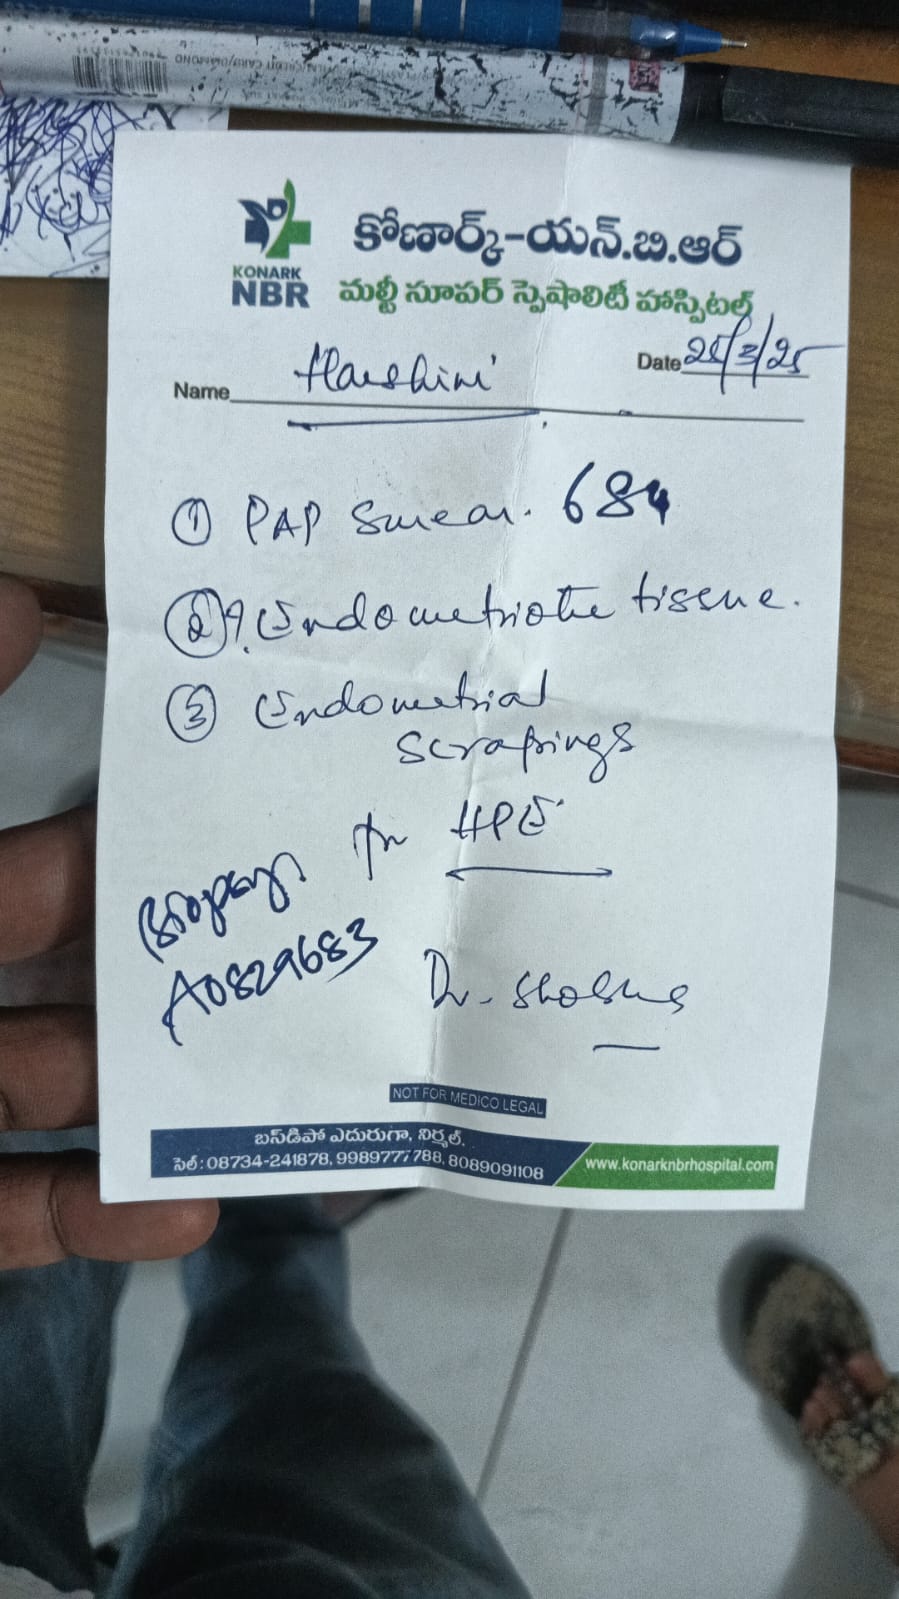 KONARK
NBR
కోణార్క్-యన్.బి.ఆర్
మల్టీ సూపర్ స్పెషాలిటీ హాస్పిటల్
Name Harshini
Date 25/3/25
① PAP Smear. 684
② ?. Endometriotic tissue.
③ Endometrial
scrapings
for HPE
Biopsy
A0829683
Dr. Shobha
NOT FOR MEDICO LEGAL
బస్‌డిపో ఎదురుగా, నిర్మల్.
సెల్: 08734-241878, 9989777788, 8089091108
www.konarknbrhospital.com